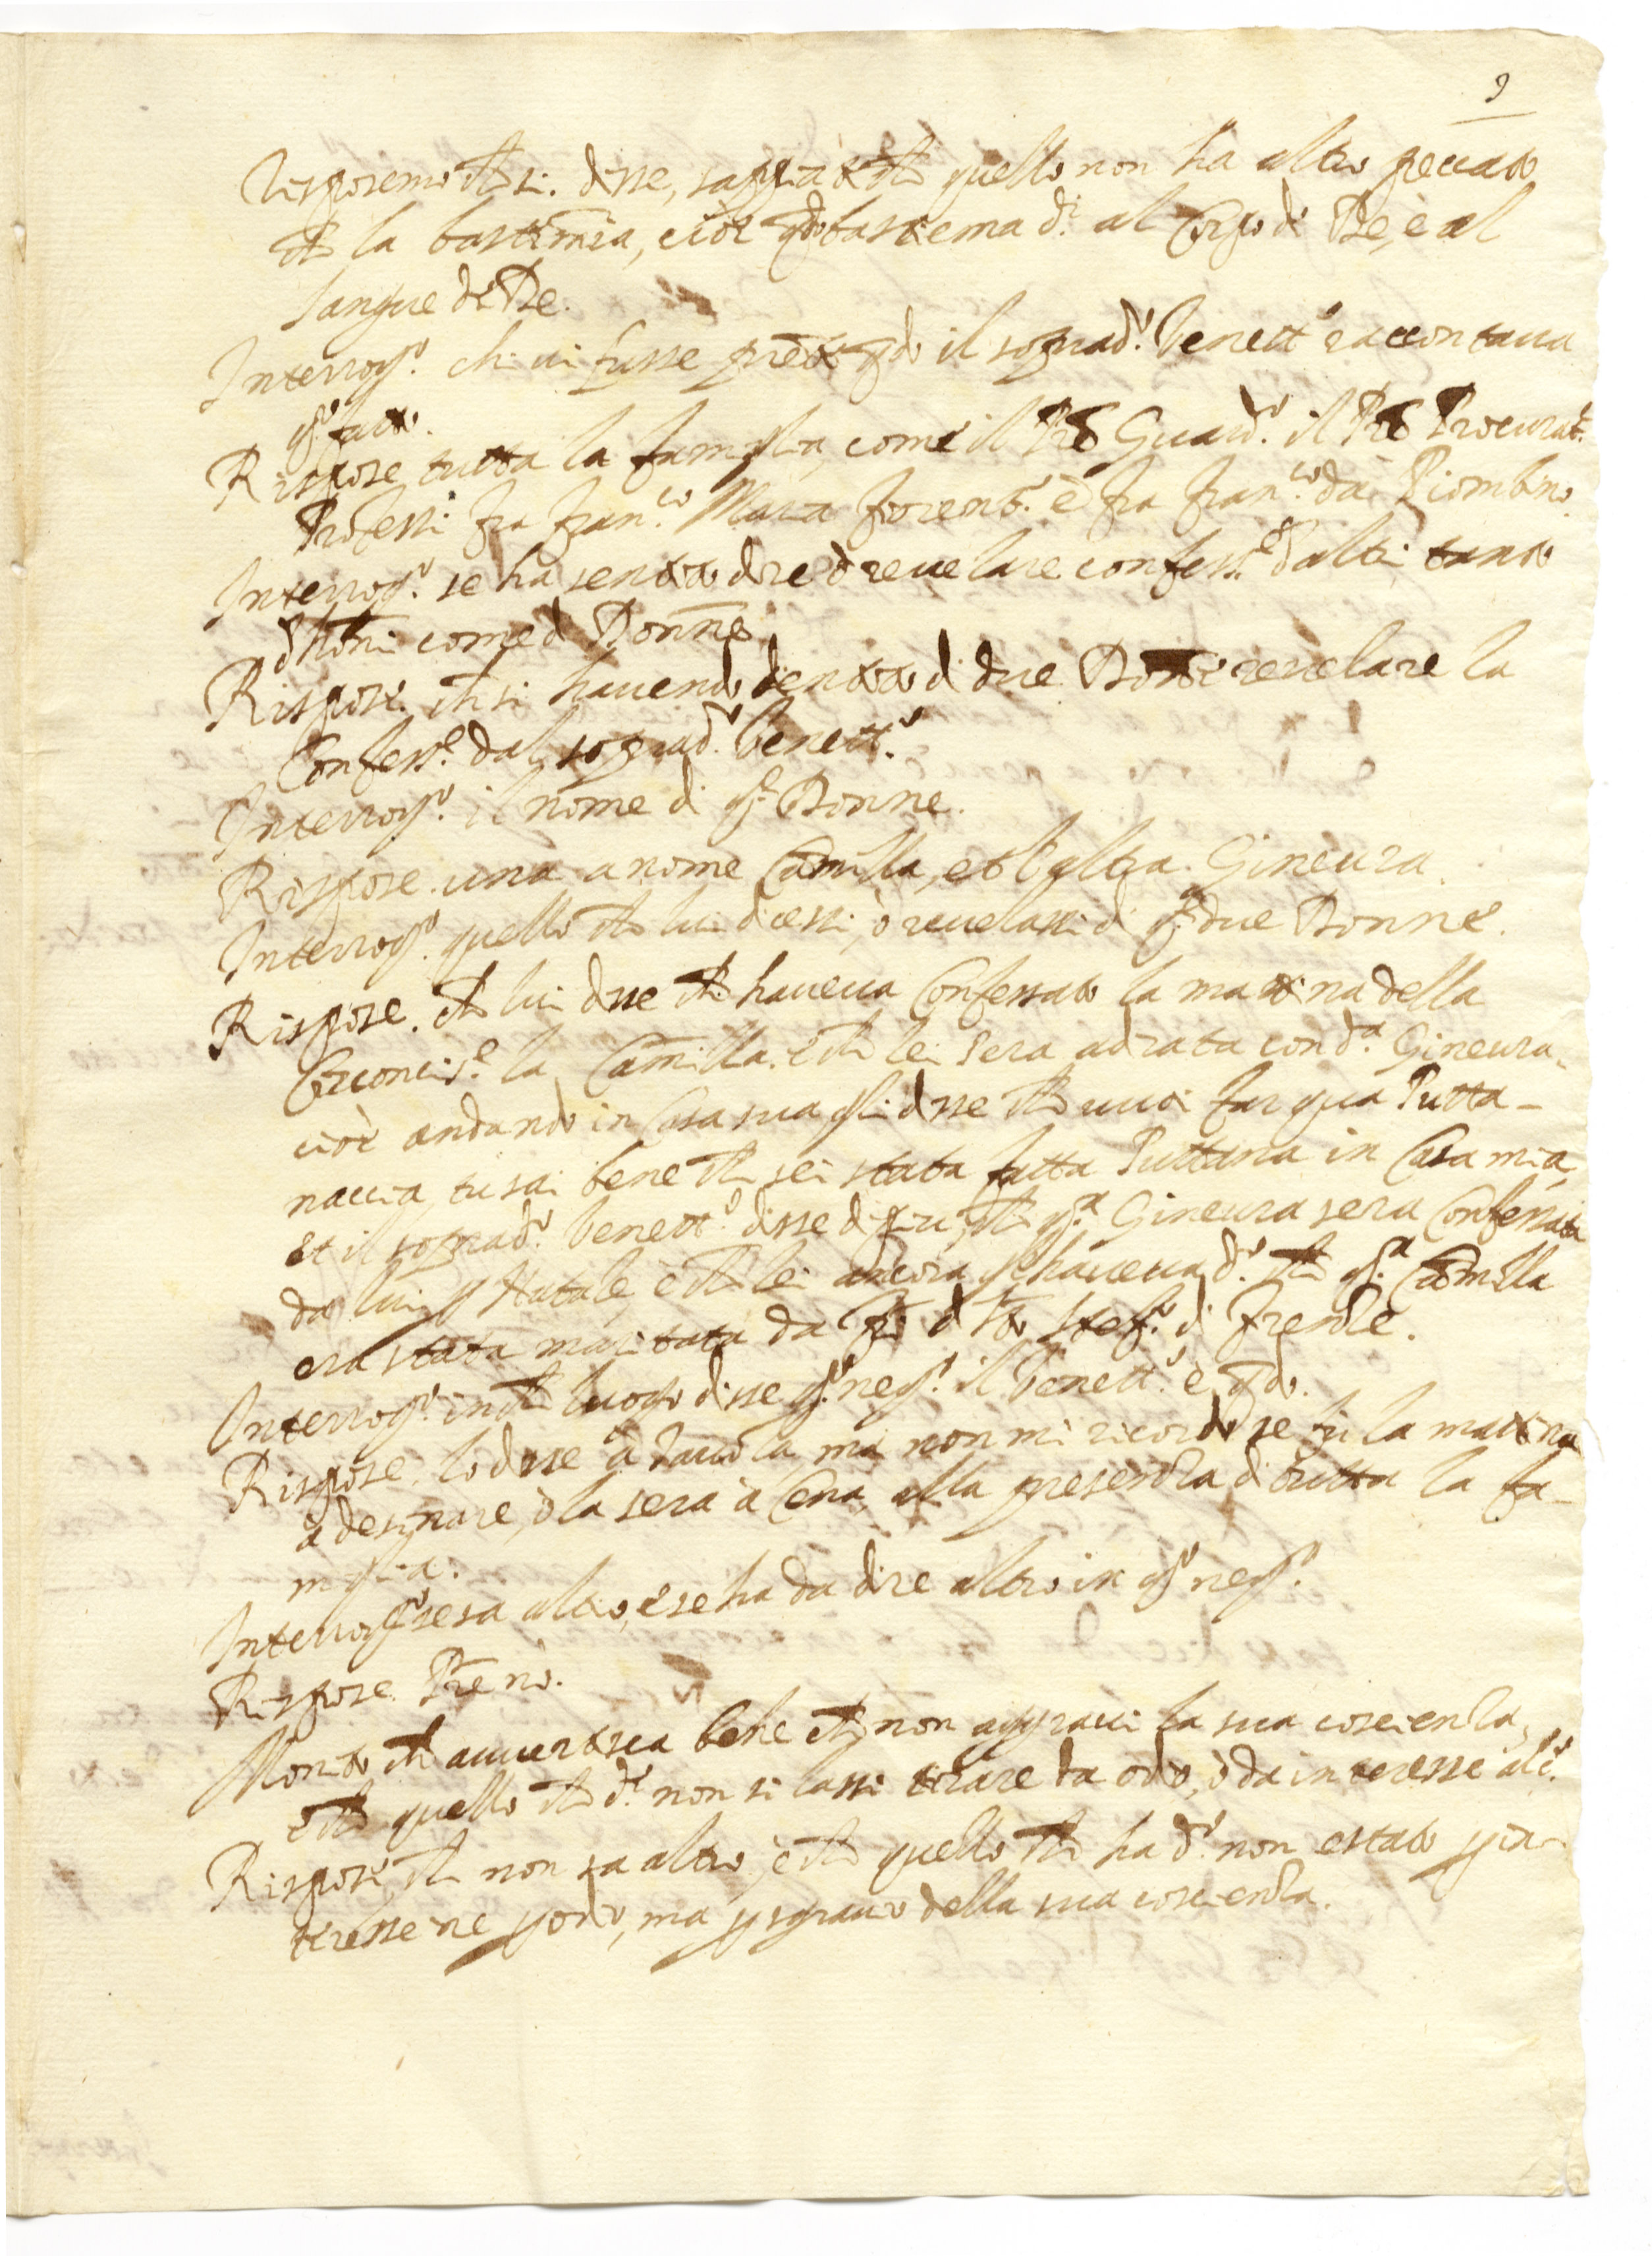 9
Risposemo ch si. disse, sappiate ch quello non ha altro peccato
ch la bastemia, cioè qdo bastiema di al Corpo di Dse, è al
Sangue di Dse.
Interrog.to chi vi fusse prete qdo il soprad.o benett.o raccontava
q.o fatto.
Rispose tutta la famiglia, come il Pre Guard.o il Pre Procurat.e
Professi fra fran.co Maria fiorent.o è fra fran.co da Piombino.
Interrog.o se ha sentito dire ò revelare confess.e d'altri tanto
d'Homi come d Donne
Rispose. ch si havendo sentito di due Donne revelare la
Confess.e dal soprad.o benett.o
Interrog.o il nome di q.e Donne.
Rispose. una a nome Camilla, et l'altra. Ginevra.
Interrog.o quello ch lui dicessi, ò revelassi di q.e due Donne.
Rispose. ch lui disse ch haveva Confessato la matina della
Circoncis.e la Camilla. è ch lei s'era adirata con d.a Ginevra.
cioè andando in Casa sua gli disse ch vuoi far qua Putta-
naccia, tu sai bene ch sei stata fatta Puttana in Casa mia,
et il soprad.o benett.o disse di piu, ch q.a Ginevra s'era Confessata
da lui p Natale, è ch lei ancora gl'haveva d.o ch q.a Camilla
era stata maritata da d Stef.o di frenze.
Interrog.o in ch luogo disse q.o neg.o il benett.o è qdo.
Rispose. lo disse à tavola, ma non mi ricordo se fu la matina
à desinare, ò la sera à Cena, alla presenza di tutta la fa-
miglia.
Interrog.o se sa altro, è se ha da dire altro in q.o neg.o
Rispose Pre nò.
Monito ch avvertisca bene ch non aggravi la sua coscienza,
è ch quello ch d.e non si lassi tirare da odio, ò da interesse alc.o
Rispose, ch non sa altro, è ch quello ch ha d.o non è stato p in-
teresse ne p odio, ma p sgravio della sua coscienza.